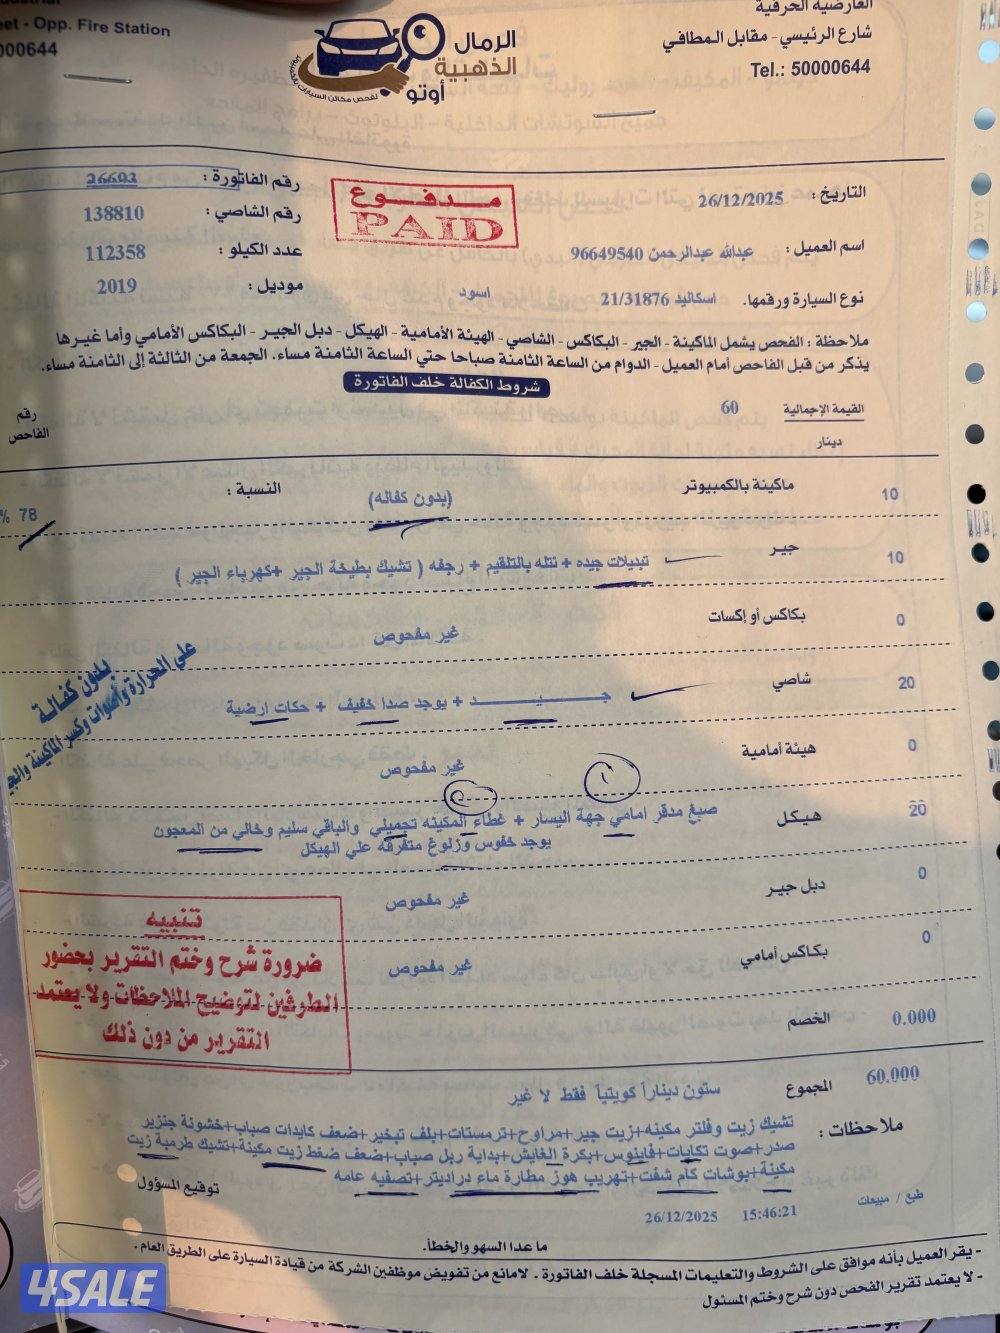 العارضية الحرفية
eet - Opp. Fire Station
شارع الرئيسي - مقابل المطافي
0000644
Tel.: 50000644
الرمال
الذهبية
أوتو
لفحص مكائن السيارات بالكمبيوتر
التاريخ : 26/12/2025
رقم الفاتورة : 26693
مدفوع
PAID
رقم الشاصي : 138810
اسم العميل : عبدالله عبدالرحمن 96649540
عدد الكيلو : 112358
نوع السيارة ورقمها. اسكاليد 21/31876 اسود
موديل : 2019
ملاحظة : الفحص يشمل الماكينة - الجير - البكاكس - الشاصي - الهيئة الأمامية - الهيكل - دبل الجير - البكاكس الأمامي وأما غيرها
يذكر من قبل الفاحص أمام العميل - الدوام من الساعة الثامنة صباحا حتي الساعة الثامنة مساء. الجمعة من الثالثة إلى الثامنة مساء.
شروط الكفالة خلف الفاتورة
القيمة الإجمالية 60
دينار
رقم
الفاحص
10 ماكينة بالكمبيوتر (بدون كفاله) النسبة : 78 %
10 جير تبديلات جيده + نتله بالتلقيم + رجفه ( تشيك بطيخة الجير +كهرباء الجير )
0 بكاكس أو إكسات غير مفحوص
20 شاصي جـــيـــد + يوجد صدا خفيف + حكات ارضية
بدون كفالة
على الحرارة وأصوات وكسر الماكينة والجير
0 هيئة أمامية غير مفحوص
20 هيكل صبغ مدقر امامي جهة اليسار + غطاء المكينه تجميلي والباقي سليم وخالي من المعجون
يوجد خفوس وزلوغ متفرقه علي الهيكل
0 دبل جير غير مفحوص
0 بكاكس أمامي غير مفحوص
تنبيه
ضرورة شرح وختم التقرير بحضور
الطرفين لتوضيح الملاحظات ولا يعتمد
التقرير من دون ذلك
0.000 الخصم
60.000 المجموع ستون ديناراً كويتياً فقط لا غير
ملاحظات : تشيك زيت وفلتر مكينه+زيت جير+مراوح+ترمستات+بلف تبخير+ضعف كايدات صباب+خشونة جنزير
صدر+صوت تكايات+فاينوس+بكرة الغايش+بداية ربل صباب+ضعف ضغط زيت مكينة+تشيك طرمبة زيت
مكينة+بوشات كام شفت+تهريب هوز مطارة ماء دراديتر+تصفيه عامه
توقيع المسؤول
طبع / مبيعات
15:46:21 26/12/2025
ما عدا السهو والخطأ.
- يقر العميل بأنه موافق على الشروط والتعليمات المسجلة خلف الفاتورة . لامانع من تفويض موظفين الشركة من قيادة السيارة على الطريق العام .
- لا يعتمد تقرير الفحص دون شرح وختم المسئول
4SALE